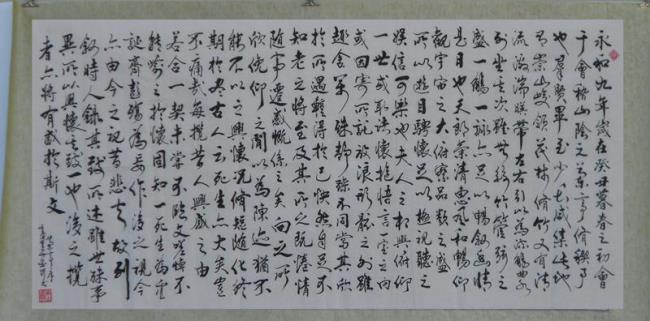 永和九年歲在癸丑暮春之初會
于會稽山陰之蘭亭脩禊事
也群賢畢至少長咸集此地
有崇山峻領茂林脩竹又有清
流激湍映帶左右引以為流觴曲水
列坐其次雖無絲竹管弦之
盛一觴一詠亦足以暢敘幽情
是日也天朗氣清惠風和暢仰
觀宇宙之大俯察品類之盛
所以遊目騁懷足以極視聽之
娛信可樂也夫人之相與俯仰
一世或取諸懷抱悟言一室之內
或因寄所託放浪形骸之外雖
趣舍萬殊靜躁不同當其欣
於所遇蹔得於己快然自足不
知老之將至及其所之既惓情
隨事遷感慨係之矣向之所
欣俛仰之間以為陳迹猶不
能不以之興懷況脩短隨化終
期於盡古人云死生亦大矣豈
不痛哉每攬昔人興感之由
若合一契未嘗不臨文嗟悼不
能喻之於懷固知一死生為虛
誕齊彭殤為妄作後之視今
亦由今之視昔悲夫故列
敘時人錄其所述雖世殊事
異所以興懷其致一也後之攬
者亦將有感於斯文